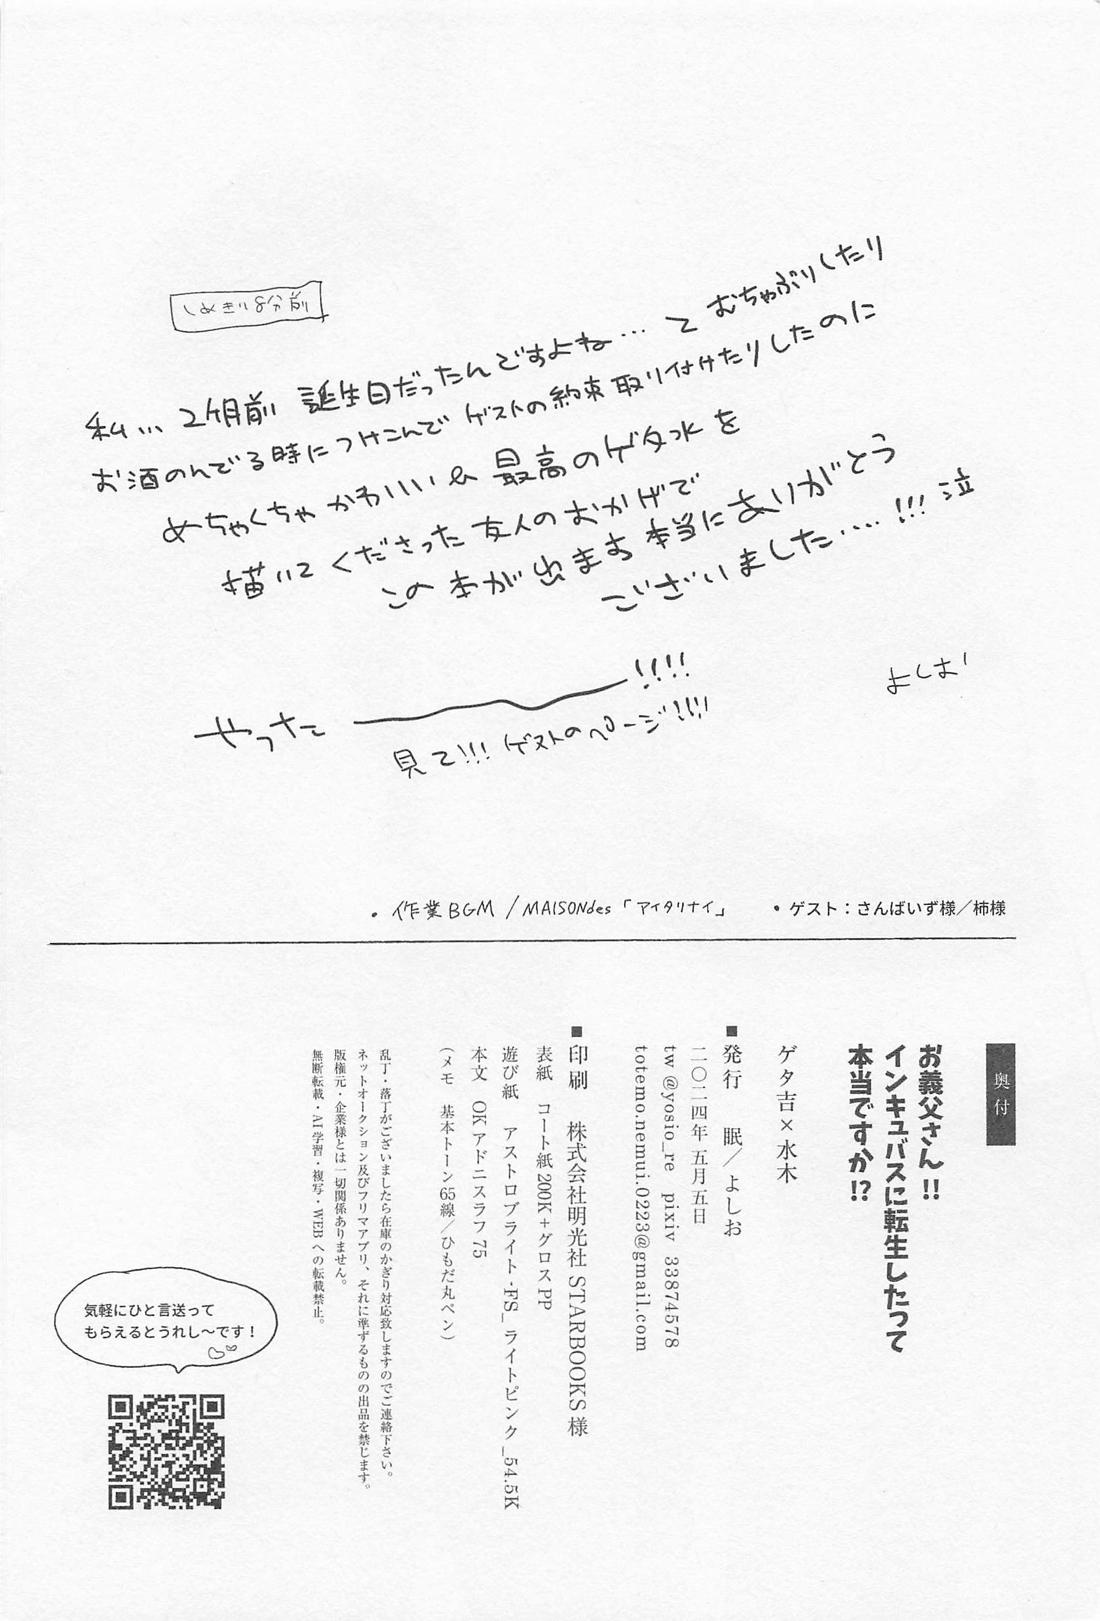 しめきり8分前
私… 2ヶ月前 誕生日だったんですよね… と むちゃぶりしたり
お酒のんでる時につけこんで ゲストの約束取り付けたりしたのに
めちゃくちゃかわいい& 最高のゲタ水を
描いてくださった友人のおかげで
この本が出ます 本当にありがとう
ございました……!!! 泣
よしお
やったー!!!!
見て!!! ゲストのページ!!!!
・ゲスト：さんばいず様／柿様
・作業BGM /MAISONdes「アイタリナイ」
奥付
お義父さん!!
インキュバスに転生したって
本当ですか!?
ゲタ吉×水木
■発行　眠／よしお
二〇二四年 五月五日
tw @yosio_re　pixiv 33874578
totemo.nemui.0223@gmail.com
■印刷　株式会社明光社 STARBOOKS 様
表紙　コート紙200K+グロスPP
遊び紙　アストロブライト・FS_ライトピンク_54.5K
本文　OKアドニスラフ75
（メモ　基本トーン65線／ひもだ丸ペン）
乱丁・落丁がございましたら在庫のかぎり対応致しますのでご連絡下さい。
ネットオークション及びフリマアプリ、それに準ずるものの出品を禁じます。
版権元・企業様とは一切関係ありません。
無断転載・AI学習・複写・WEBへの転載禁止。
気軽にひと言送って
もらえるとうれし〜です！